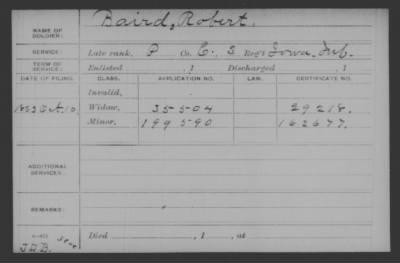 NAME OF SOLDIER: Baird, Robert.
SERVICE: Late rank, P Co. C, 5 Reg't Iowa Inf.
TERM OF SERVICE: Enlisted , 1 Discharged , 1
DATE OF FILING. CLASS. APPLICATION NO. LAW. CERTIFICATE NO.
Invalid,
Widow, 35504 29218.
Minor, 199590 162677.
ADDITIONAL SERVICES:
REMARKS:
Died , 1 , at